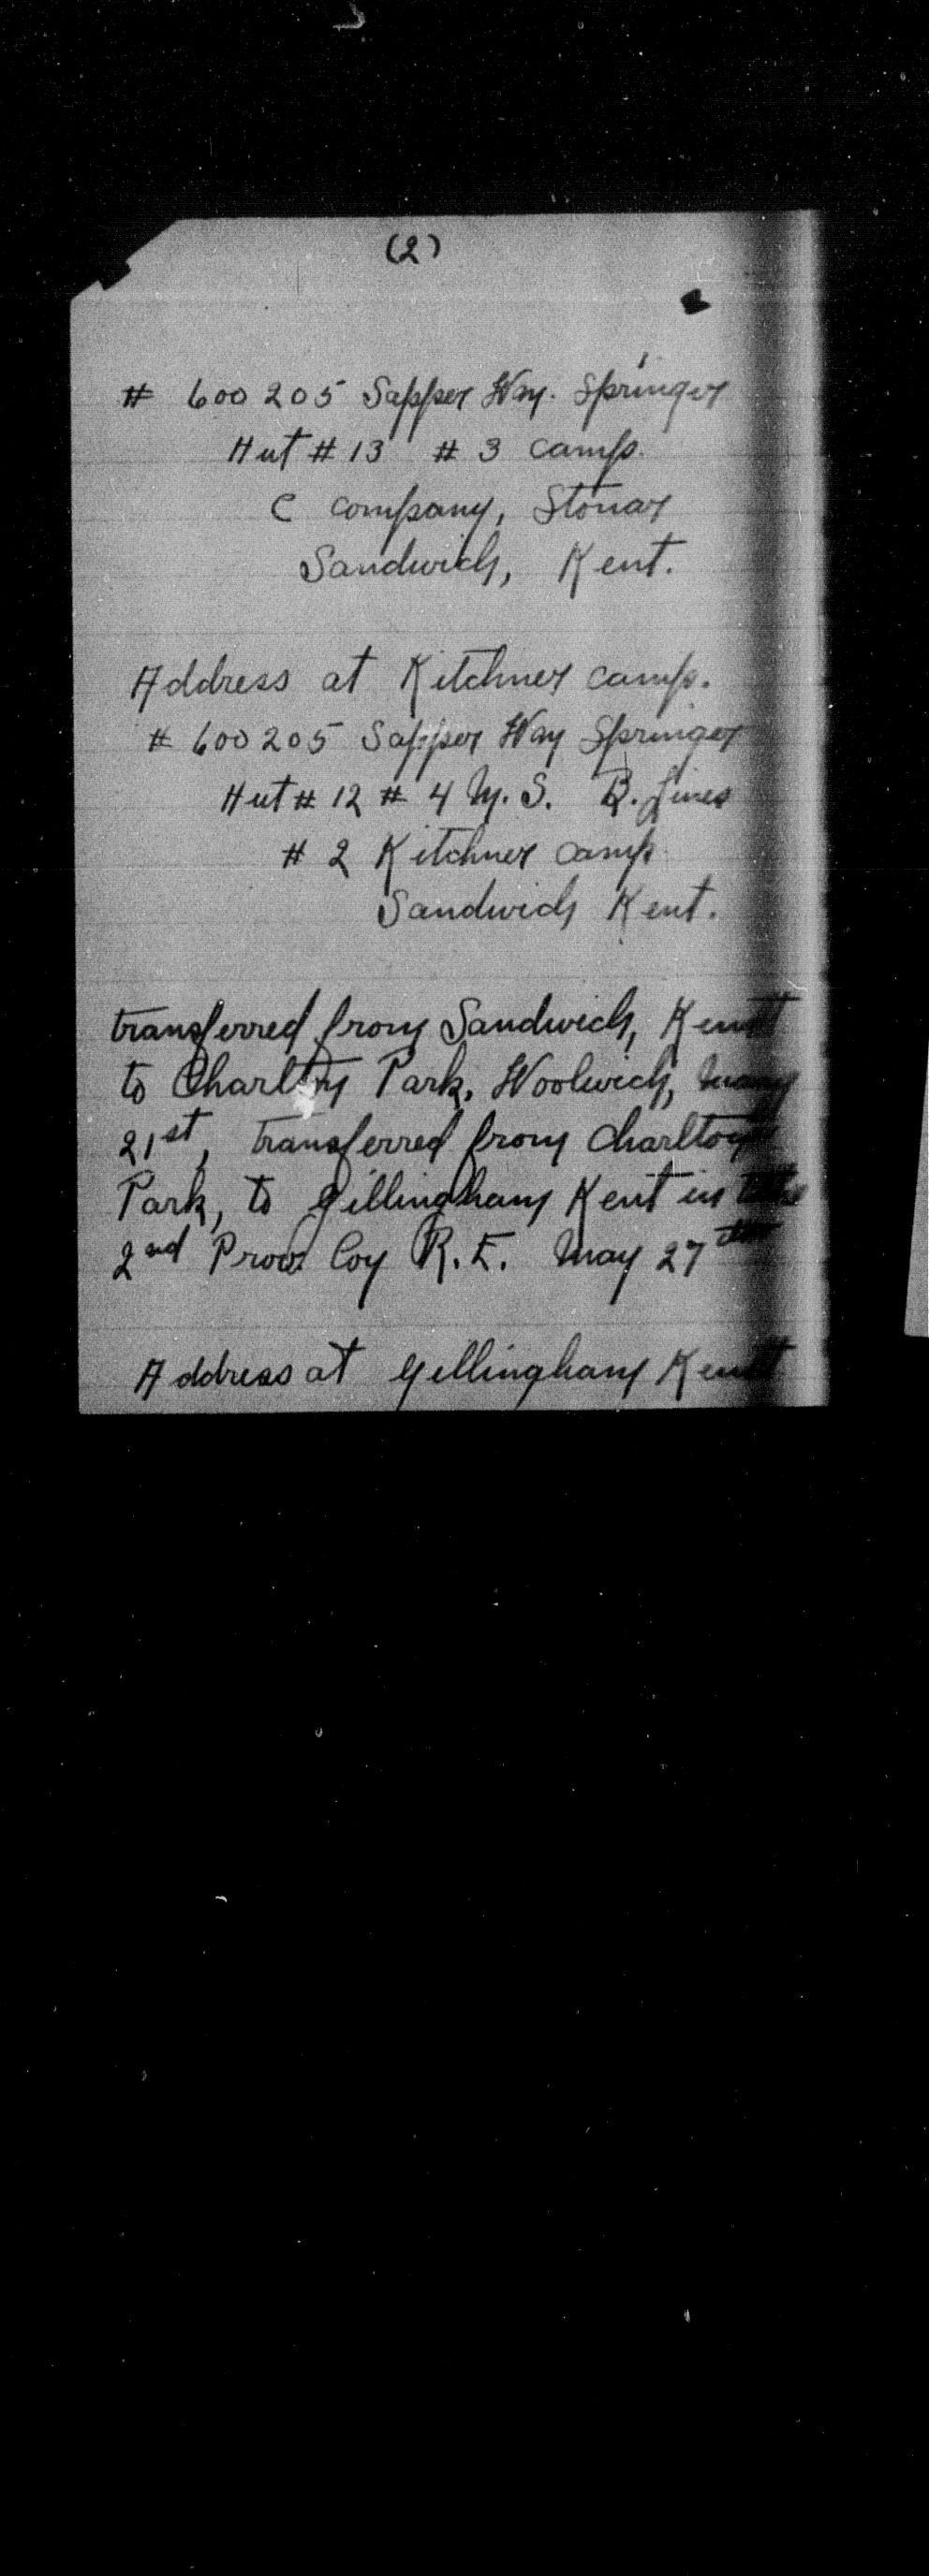 (2)
# 600205 Sapper Wm. Springer
Hut # 13 # 3 camp.
C company, Stonar
Sandwich, Kent.
Address at Kitchner camp.
# 600205 Sapper Wm Springer
Hut # 12 # 4 M. S. B. Lines
# 2 Kitchner camp
Sandwich Kent.
transferred from Sandwich, Kent
to Charlton Park, Woolwich, May
21st, transferred from Charlton
Park, to Gillingham Kent in the
2nd Prov. Coy R.E. May 27th
Address at Gillingham Kent